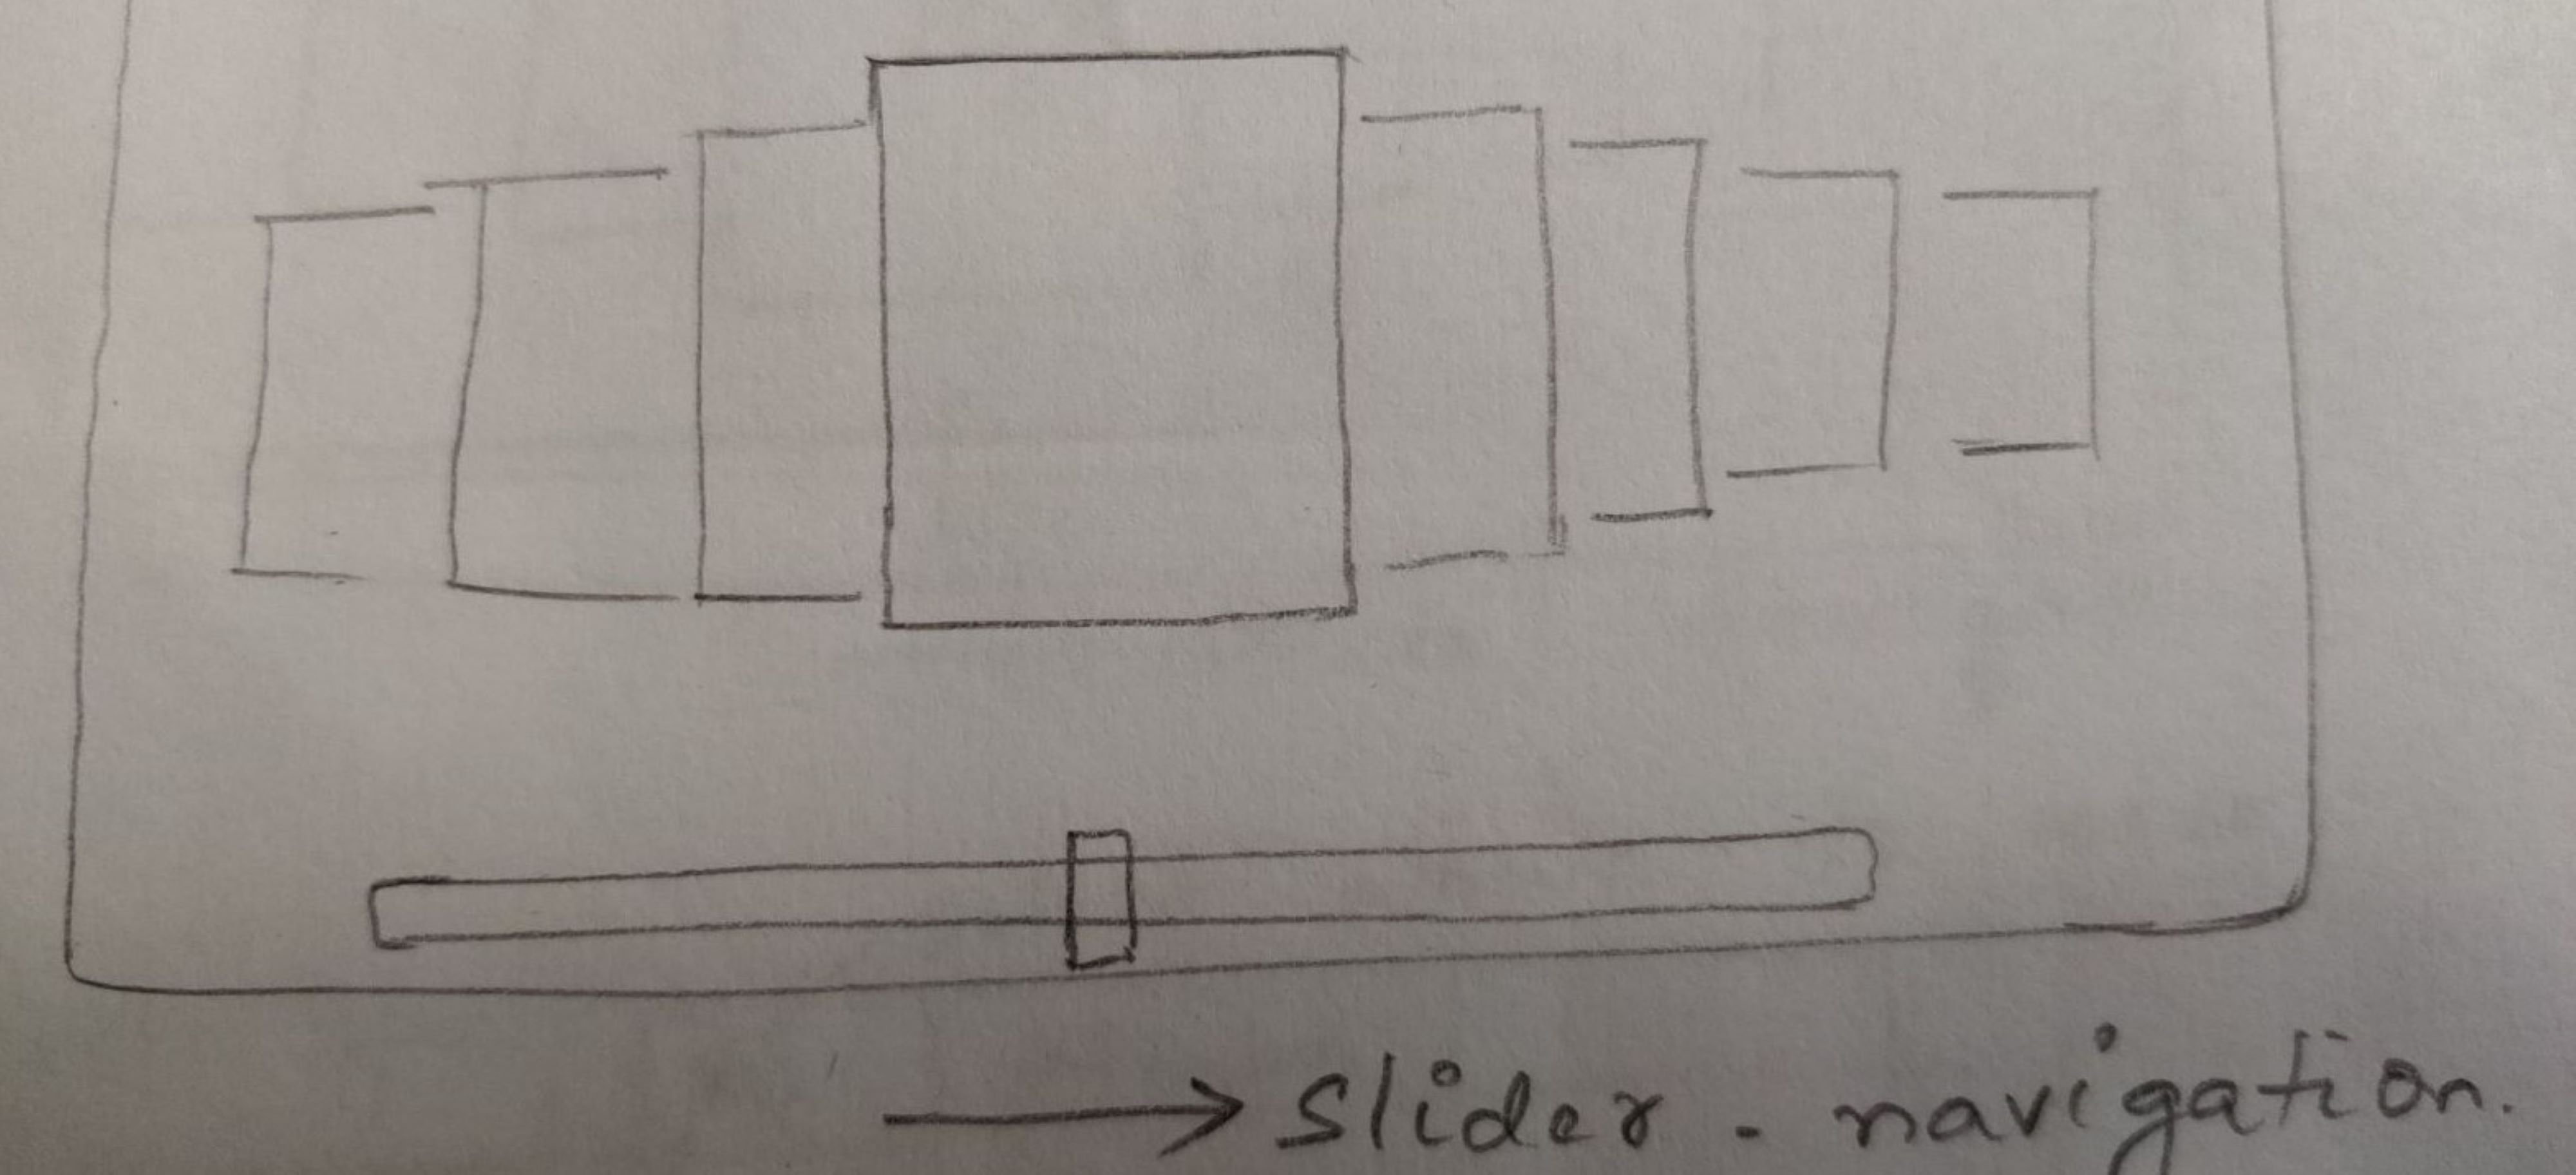 → slider - navigation.